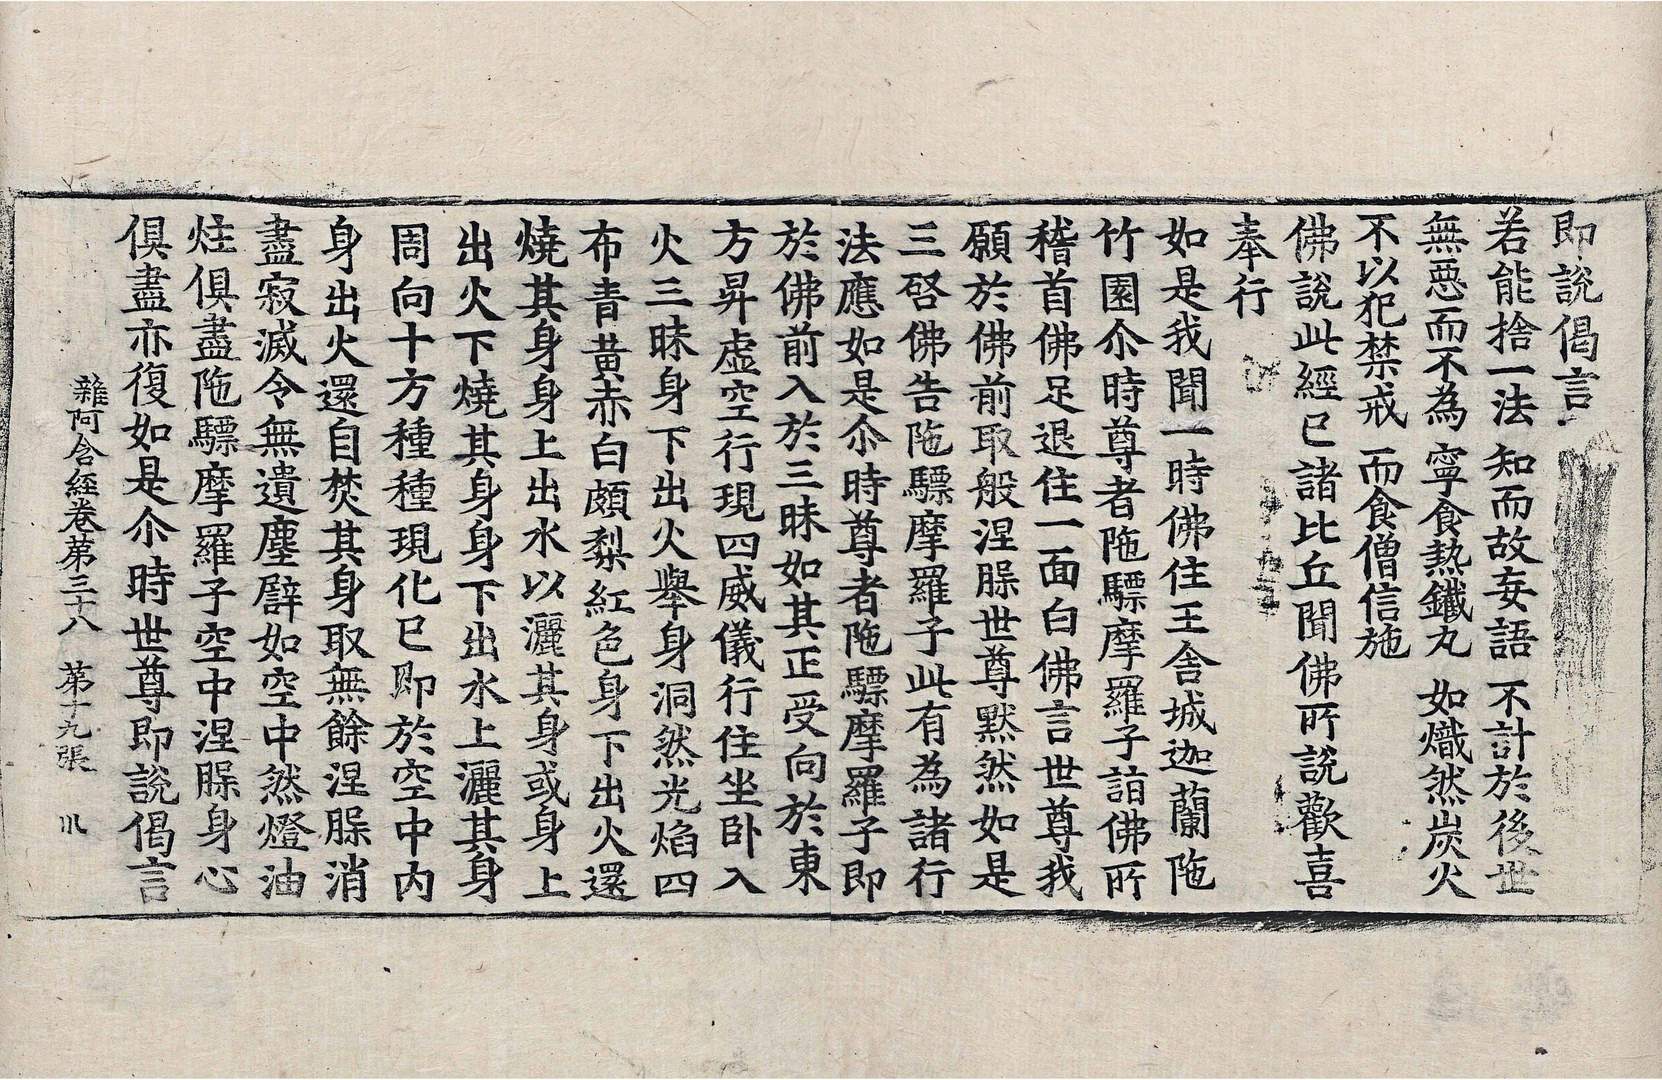 即說偈言
若能捨一法 知而故妄語 不計於後世
無惡而不為 寧食熱鐵丸 如熾然炭火
不以犯禁戒 而食僧信施
佛說此經已諸比丘聞佛所說歡喜
奉行
如是我聞一時佛住王舍城迦蘭陁
竹園尒時尊者陁驃摩羅子詣佛所
稽首佛足退住一面白佛言世尊我
願於佛前取般涅槃世尊默然如是
三啓佛告陁驃摩羅子此有為諸行
法應如是尒時尊者陁驃摩羅子即
於佛前入於三昧如其正受向於東
方昇虛空行現四威儀行住坐卧入
火三昧身下出火舉身洞然光焰四
布青黃赤白頗梨紅色身下出火還
燒其身身上出水以灑其身或身上
出火下燒其身身下出水上灑其身
周向十方種種現化已即於空中內
身出火還自焚其身取無餘涅槃消
盡寂滅令無遺塵譬如空中然燈油
炷俱盡陁驃摩羅子空中涅槃身心
俱盡亦復如是尒時世尊即說偈言
雜阿含經卷第三十八 第十九張